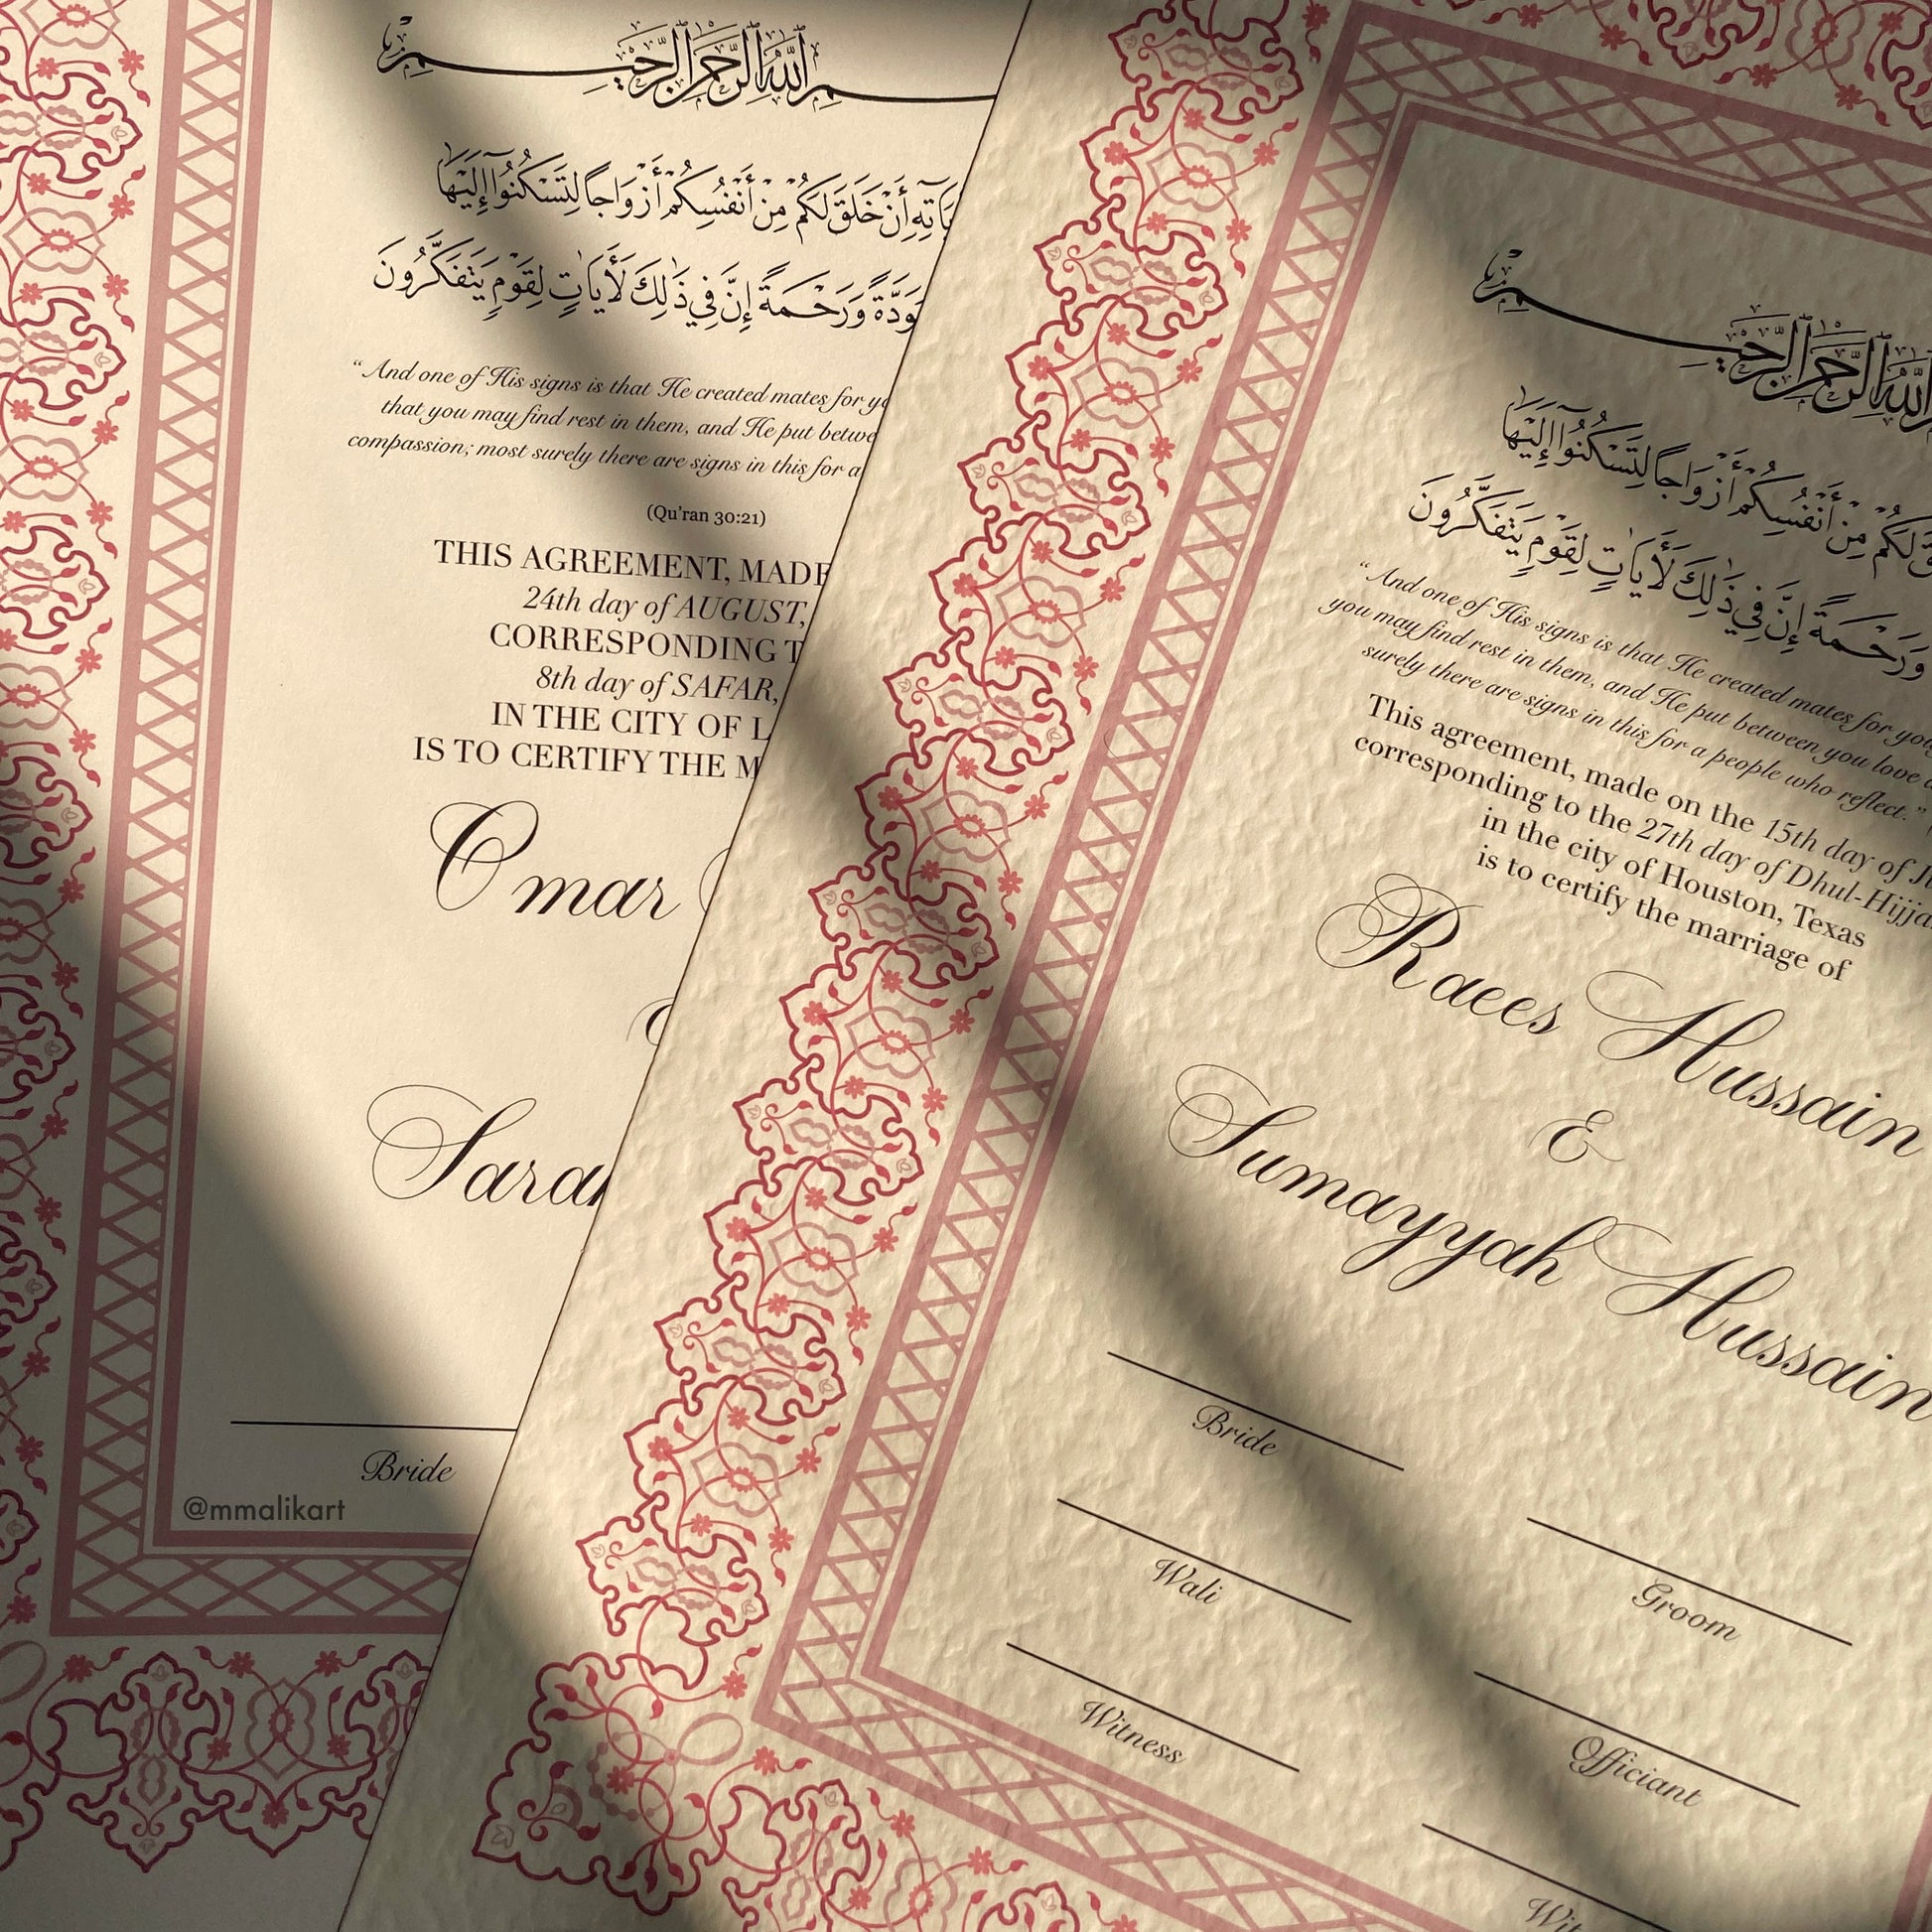 بسم الله الرحمن الرحيم
أَنْ خَلَقَ لَكُم مِّنْ أَنفُسِكُمْ أَزْوَاجًا لِّتَسْكُنُوا إِلَيْهَا
وَرَحْمَةً إِنَّ فِي ذَٰلِكَ لَآيَاتٍ لِّقَوْمٍ يَتَفَكَّرُونَ
“And one of His signs is that He created mates for
that you may find rest in them, and He put
compassion; most surely there are signs in this for a
(Qu'ran 30:21)
THIS AGREEMENT, MADE
24th day of AUGUST,
CORRESPONDING
8th day of SAFAR,
IN THE CITY OF
IS TO CERTIFY THE
Omar
Bride
@mmalikart
الله الرحمن الرحيم
لَكُم مِّنْ أَنفُسِكُمْ أَزْوَاجًا لِّتَسْكُنُوا إِلَيْهَا
وَرَحْمَةً إِنَّ فِي ذَٰلِكَ لَآيَاتٍ لِّقَوْمٍ يَتَفَكَّرُونَ
“And one of His signs is that He created mates for
you may find rest in them, and He put between you love
surely there are signs in this for a people who reflect.”
This agreement, made on the 15th day of
corresponding to the 27th day of
in the city of Houston, Texas
is to certify the marriage of
Raees Hussain
&
Sumayyah Hussain
Bride
Wali
Groom
Witness
Officiant